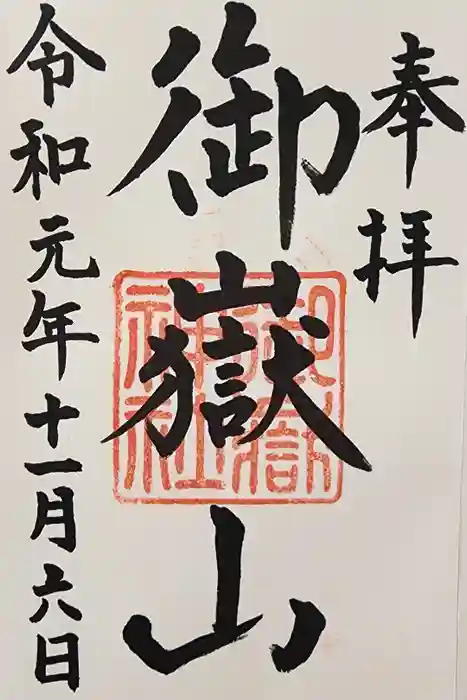 奉拝
御嶽山
御嶽
神社
令和元年十一月六日